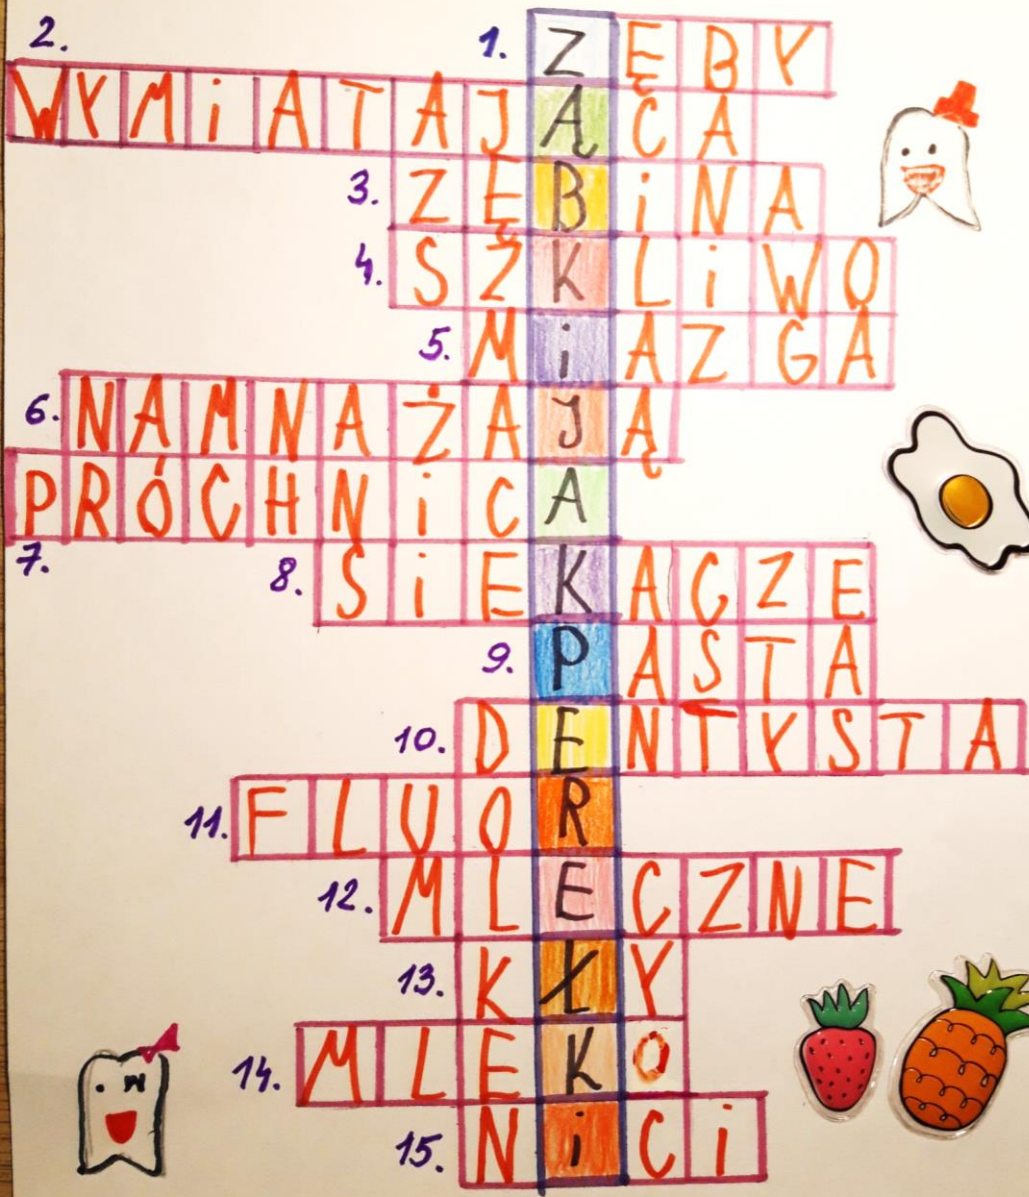 1. ZĘBY
2. WYMiATAJĄCA
3. ZĘBiNA
4. SZKLiWO
5. MiAZGA
6. NAMNAŻAJĄ
7. PRÓCHNiCA
8. SiEKACZE
9. PASTA
10. DENTYSTA
11. FLUOR
12. MLECZNE
13. KŁY
14. MLEKO
15. NiCi